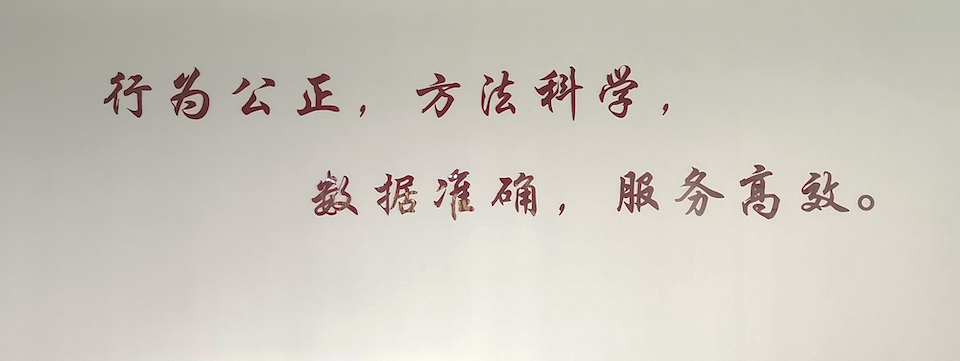 行为公正，方法科学，
数据准确，服务高效。